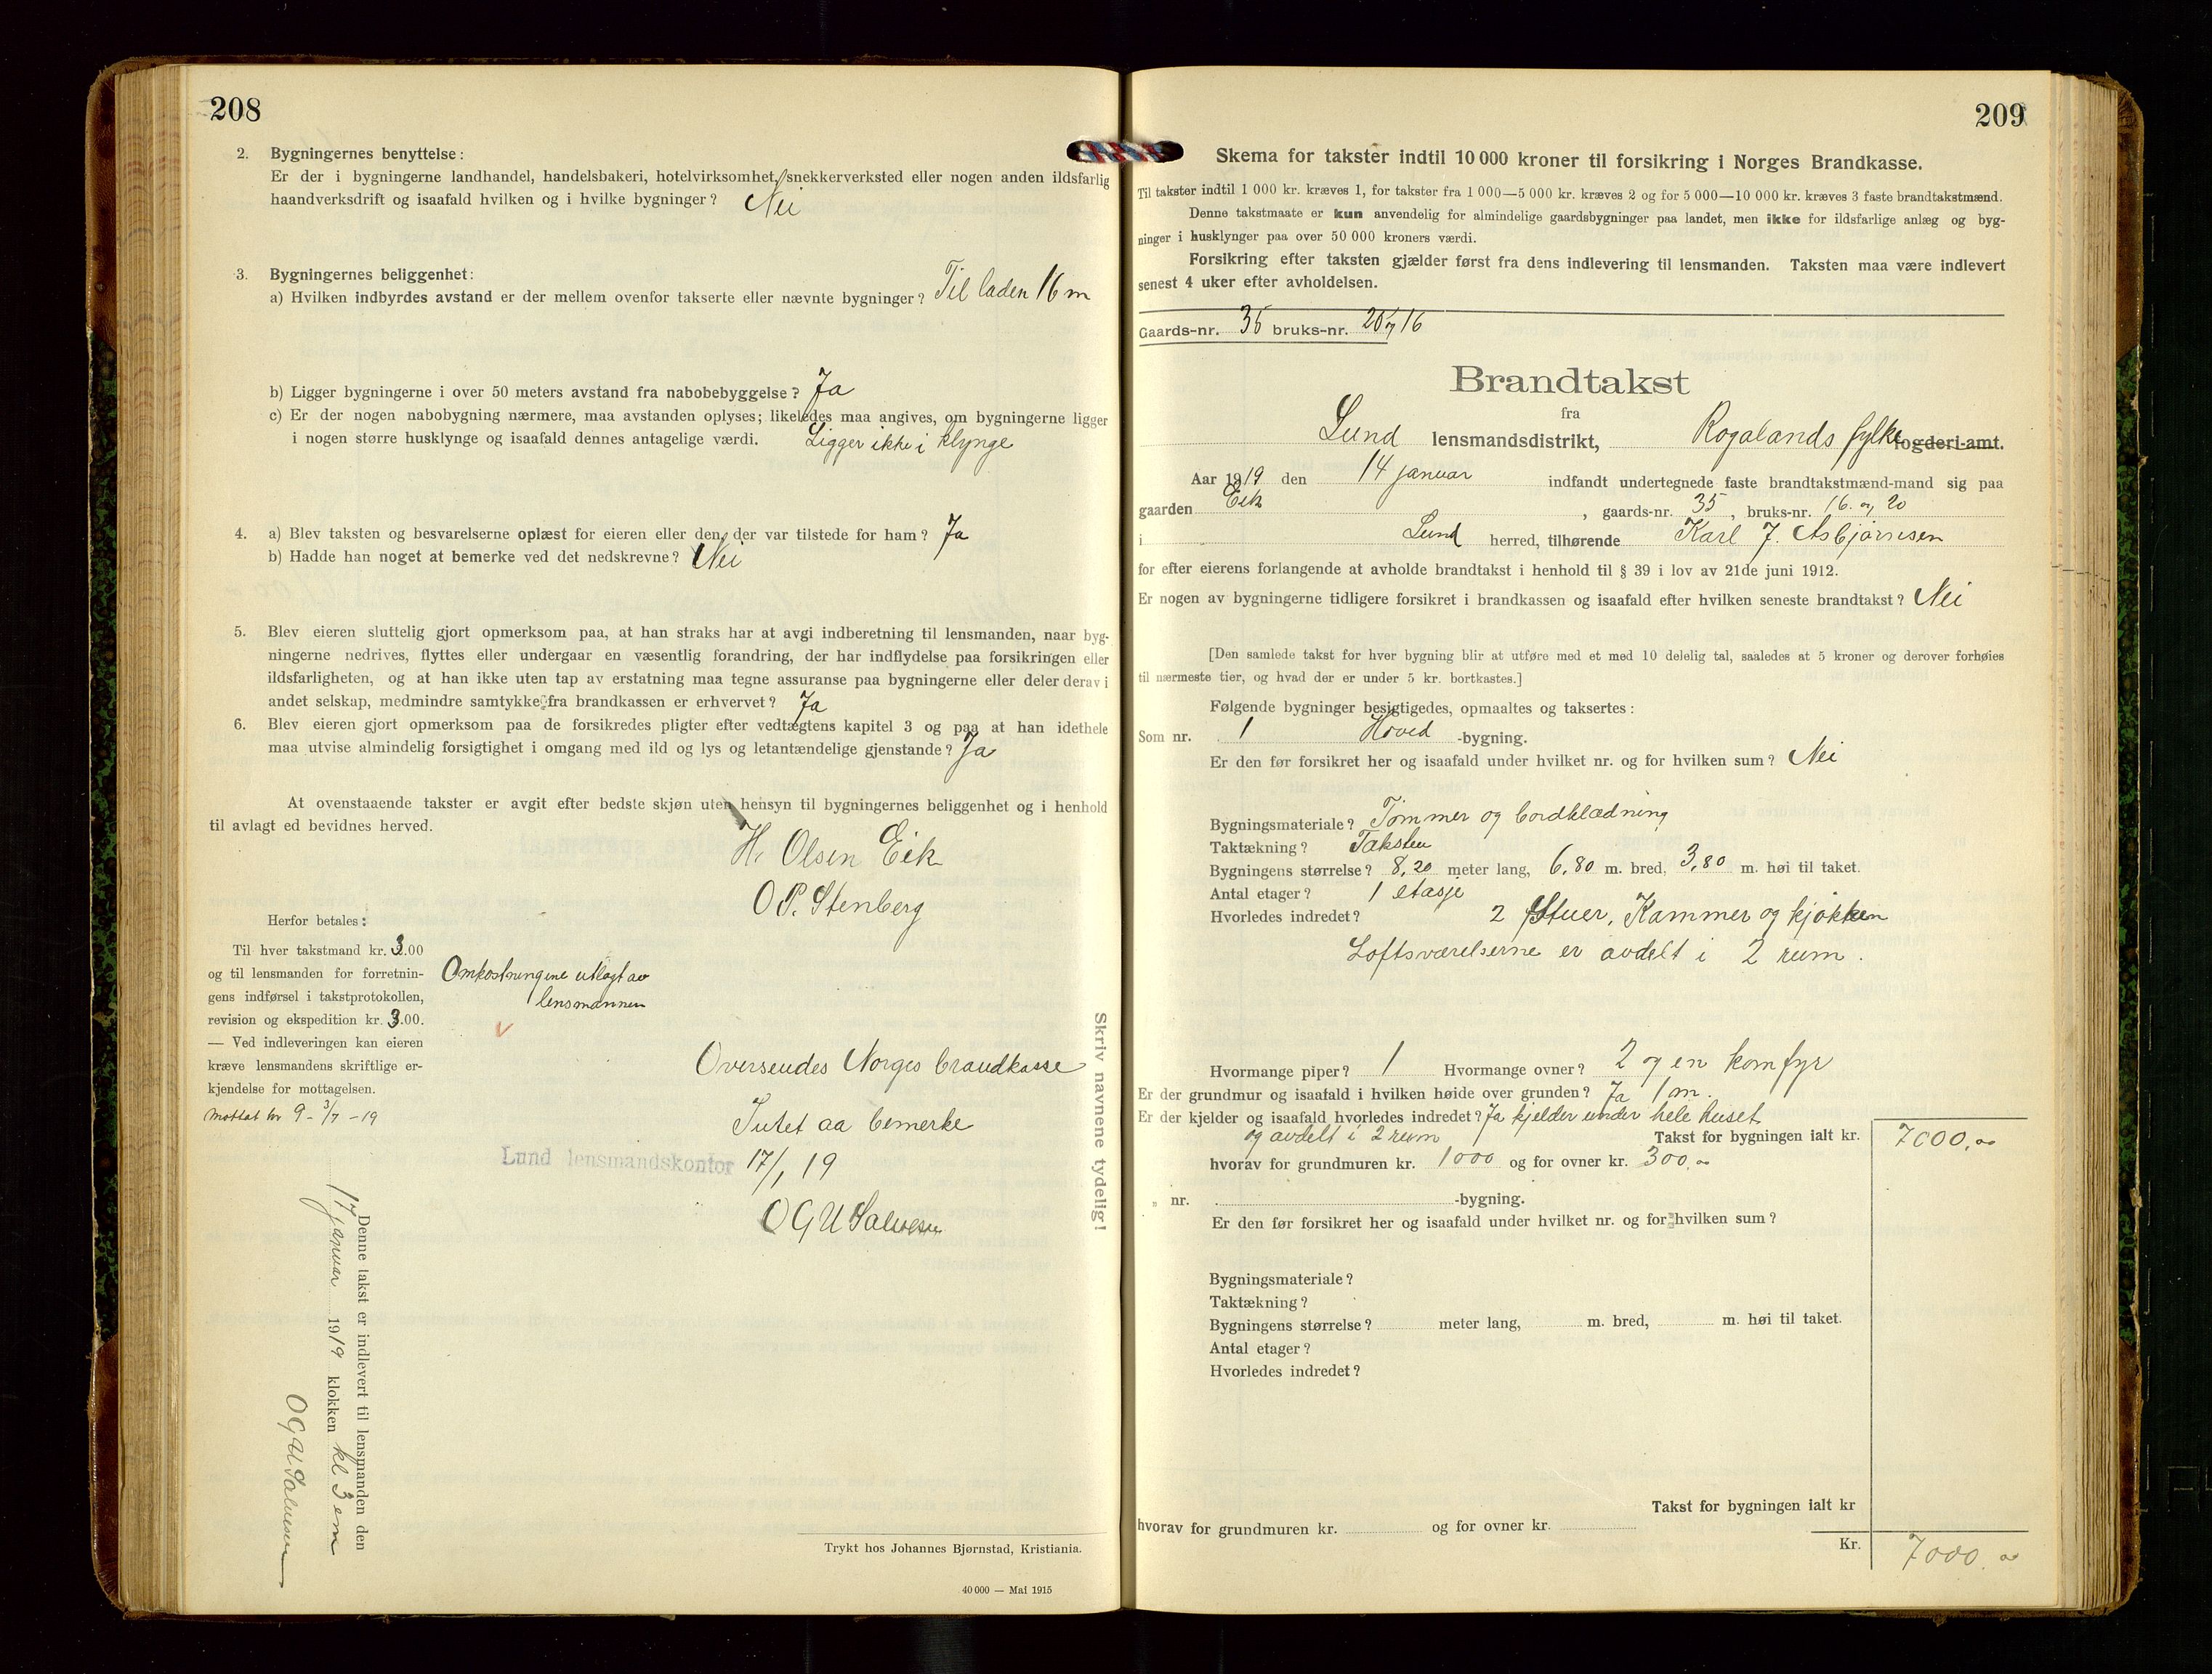 208
2. Bygningernes benyttelse:
Er der i bygningerne landhandel, handelsbakeri, hotelvirksomhet, snekkerverksted eller nogen anden ildsfarlig
haandverksdrift og isaafald hvilken og i hvilke bygninger? Nei
3. Bygningernes beliggenhet:
a) Hvilken indbyrdes avstand er der mellem ovenfor takserte eller nævnte bygninger? Til laden 16 m
b) Ligger bygningerne i over 50 meters avstand fra nabobebyggelse? Ja
c) Er der nogen nabobygning nærmere, maa avstanden oplyses; likeledes maa angives, om bygningerne ligger
i nogen større husklynge og isaafald dennes antagelige værdi. Ligger ikke i klynge
4. a) Blev taksten og besvarelserne oplæst for eieren eller den, der var tilstede for ham? Ja
b) Hadde han noget at bemerke ved det nedskrevne? Nei
5. Blev eieren sluttelig gjort opmerksom paa, at han straks har at avgi indberetning til lensmanden, naar byg-
ningerne nedrives, flyttes eller undergaar en væsentlig forandring, der har indflydelse paa forsikringen eller
ildsfarligheten, og at han ikke uten tap av erstatning maa tegne assuranse paa bygningerne eller deler derav i
andet selskap, medmindre samtykke fra brandkassen er erhvervet? Ja
6. Blev eieren gjort opmerksom paa de forsikredes pligter efter vedtægtens kapitel 3 og paa at han idethele
maa utvise almindelig forsigtighet i omgang med ild og lys og letantændelige gjenstande? Ja
At ovenstaaende takster er avgit efter bedste skjøn uten hensyn til bygningernes beliggenhet og i henhold
til avlagt ed bevidnes herved.
H. Olsen Eik
O P. Stenberg
Herfor betales:
Til hver takstmand kr. 3.00
og til lensmanden for forretnin-
gens indførsel i takstprotokollen,
revision og ekspedition kr. 3.00.
— Ved indleveringen kan eieren
kræve lensmandens skriftlige er-
kjendelse for mottagelsen.
Mottat kr 9 - 3/7 - 19
Omkostningene utlagt av
lensmannen
Oversendes Norges brandkasse
Intet aa bemerke
Lund lensmandskontor 17/1 19
O G U Salvesen
Denne takst er indlevert til lensmanden den
17 januar 1919 klokken kl 3 em
O G U Salvesen
Skriv navnene tydelig!
Trykt hos Johannes Bjørnstad, Kristiania.
40 000 — Mai 1915
209
Skema for takster indtil 10 000 kroner til forsikring i Norges Brandkasse.
Til takster indtil 1 000 kr. kræves 1, for takster fra 1 000—5 000 kr. kræves 2 og for 5 000—10 000 kr. kræves 3 faste brandtakstmænd.
Denne takstmaate er kun anvendelig for almindelige gaardsbygninger paa landet, men ikke for ildsfarlige anlæg og byg-
ninger i husklynger paa over 50 000 kroners værdi.
Forsikring efter taksten gjælder først fra dens indlevering til lensmanden. Taksten maa være indlevert
senest 4 uker efter avholdelsen.
Gaards-nr. 35 bruks-nr. 20 og 16
Brandtakst
fra
Lund lensmandsdistrikt, Rogalands fylke fogderi-amt.
Aar 1919 den 14 januar indfandt undertegnede faste brandtakstmænd-mand sig paa
gaarden Eik, gaards-nr. 35, bruks-nr. 16. og 20
i Lund herred, tilhørende Karl J. Asbjørnsen
for efter eierens forlangende at avholde brandtakst i henhold til § 39 i lov av 21de juni 1912.
Er nogen av bygningerne tidligere forsikret i brandkassen og isaafald efter hvilken seneste brandtakst? Nei
[Den samlede takst for hver bygning blir at utføre med et med 10 delelig tal, saaledes at 5 kroner og derover forhøies
til nærmeste tier, og hvad der er under 5 kr. bortkastes.]
Følgende bygninger besigtigedes, opmaaltes og taksertes:
Som nr. 1 Hoved -bygning.
Er den før forsikret her og isaafald under hvilket nr. og for hvilken sum? Nei
Bygningsmateriale? Tømmer og bordklædning
Taktækning? Taksten
Bygningens størrelse? 8,20 meter lang, 6,80 m. bred, 3,80 m. høi til taket.
Antal etager? 1 etasje
Hvorledes indredet? 2 Stuer, Kammer og kjøkken
Loftsværelserne er avdelt i 2 rum.
Hvormange piper? 1 Hvormange ovner? 2 og en komfyr
Er der grundmur og isaafald i hvilken høide over grunden? Ja 1 m.
Er der kjelder og isaafald hvorledes indredet? Ja kjelder under hele huset
og avdelt i 2 rum Takst for bygningen ialt kr. 7000,00
hvorav for grundmuren kr. 1000 og for ovner kr. 300,00
„ nr. -bygning.
Er den før forsikret her og isaafald under hvilket nr. og for hvilken sum?
Bygningsmateriale?
Taktækning?
Bygningens størrelse? meter lang, m. bred, m. høi til taket.
Antal etager?
Hvorledes indredet?
Takst for bygningen ialt kr
hvorav for grundmuren kr. og for ovner kr.
Kr. 7000.00